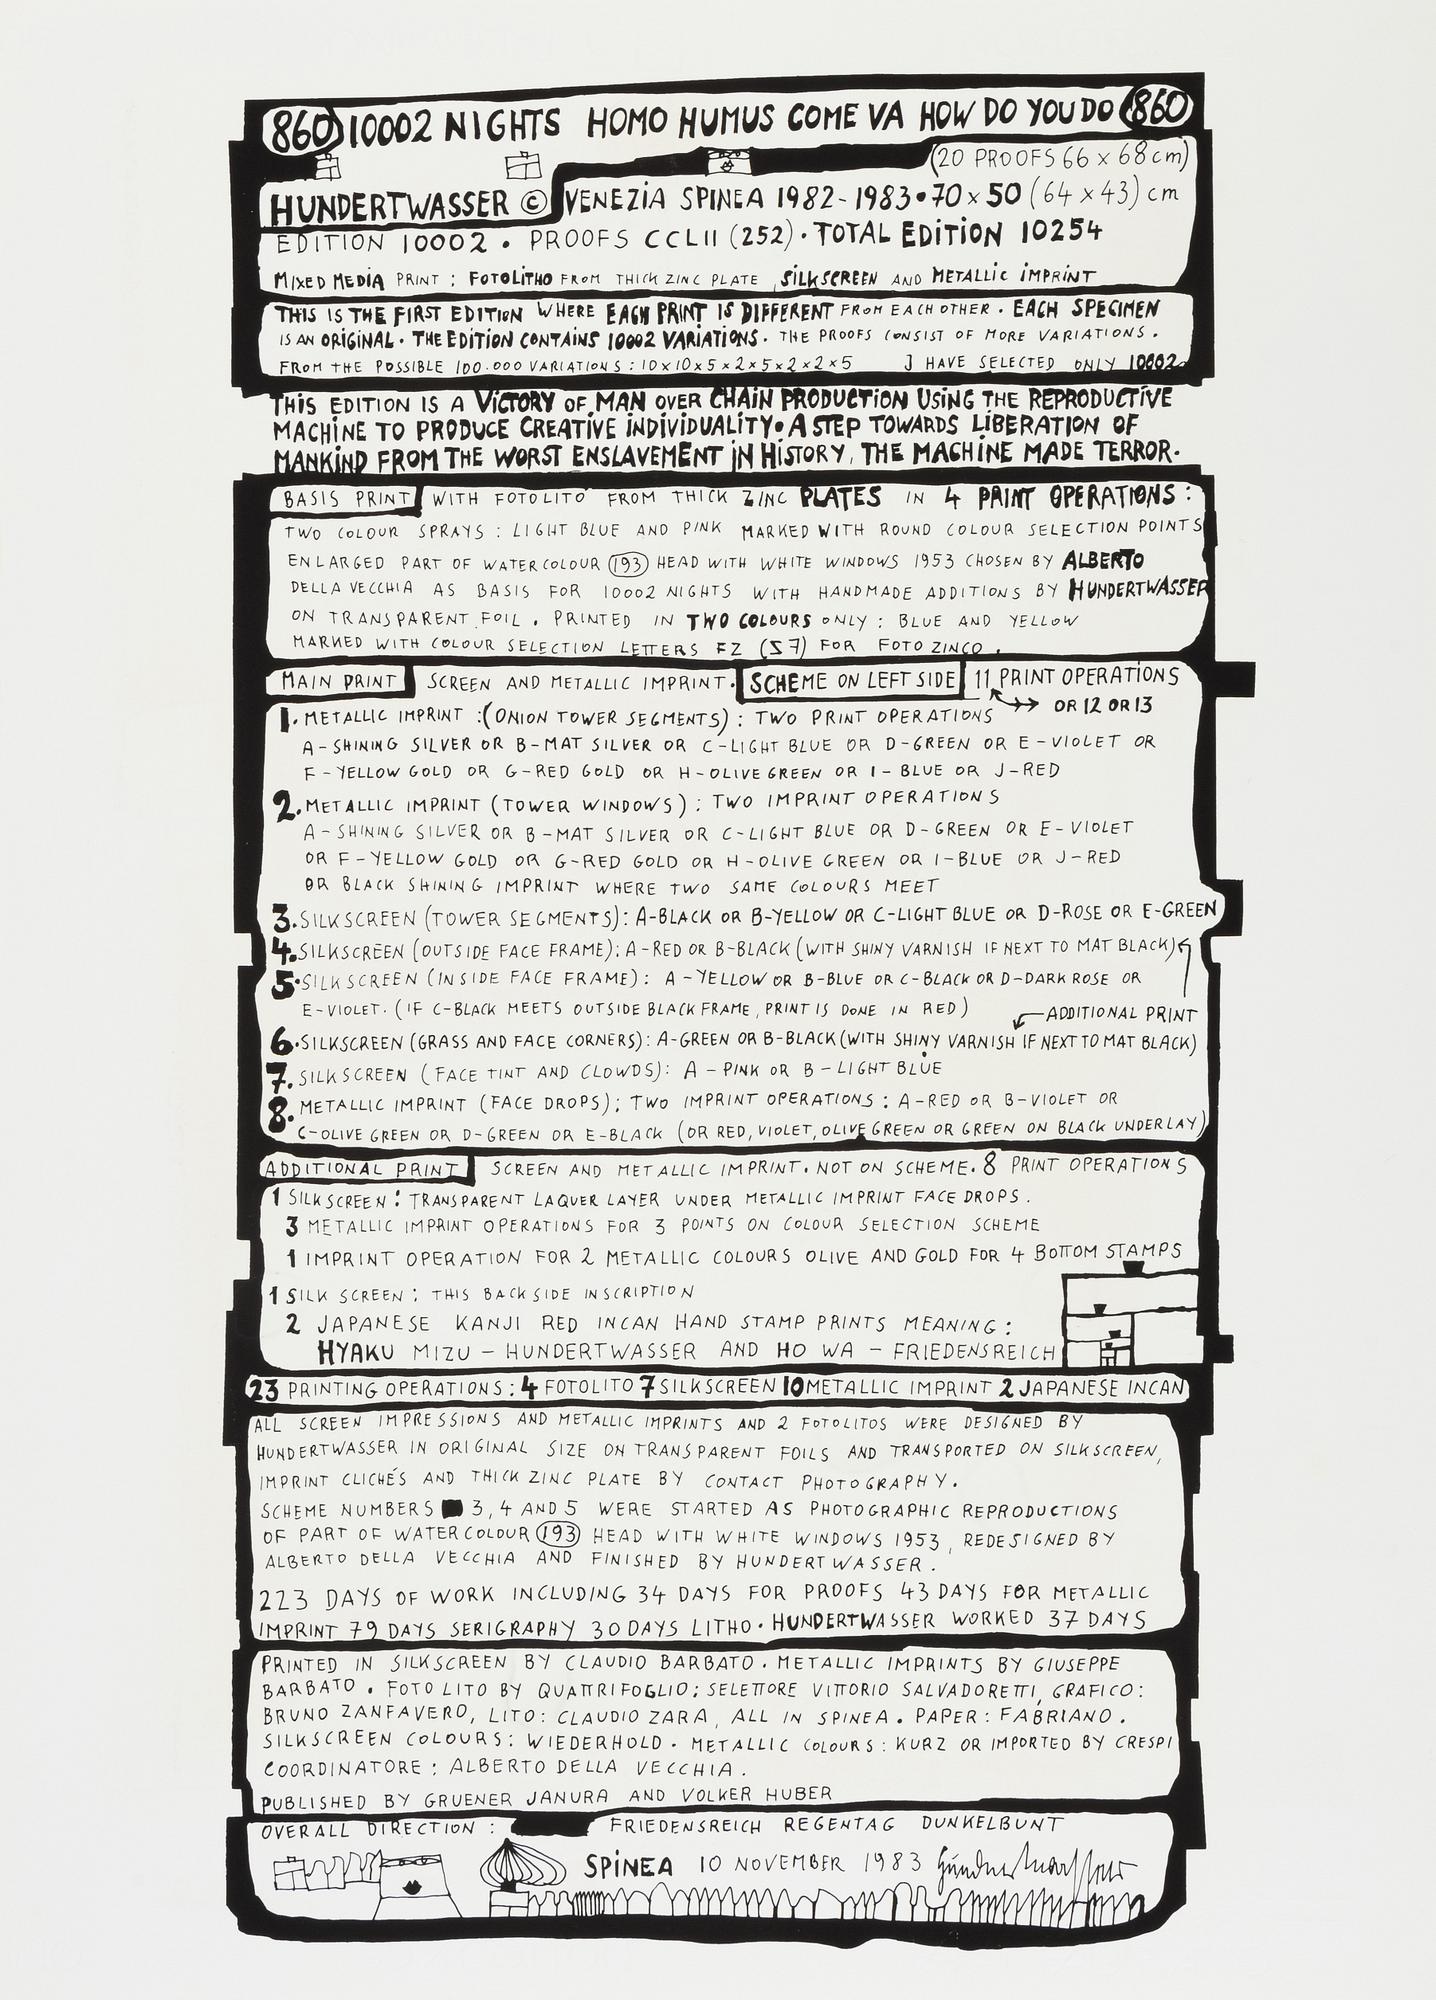 860 10002 NIGHTS HOMO HUMUS COME VA HOW DO YOU DO 860
(20 PROOFS 66 x 68 cm)
HUNDERTWASSER © VENEZIA SPINEA 1982-1983 • 70 x 50 (64 x 43) cm
EDITION 10002 • PROOFS CCLII (252) • TOTAL EDITION 10254
MIXED MEDIA PRINT : FOTOLITHO FROM THICK ZINC PLATE , SILKSCREEN AND METALLIC IMPRINT
THIS IS THE FIRST EDITION WHERE EACH PRINT IS DIFFERENT FROM EACH OTHER . EACH SPECIMEN
IS AN ORIGINAL . THE EDITION CONTAINS 10002 VARIATIONS . THE PROOFS CONSIST OF MORE VARIATIONS .
FROM THE POSSIBLE 100.000 VARIATIONS : 10 x 10 x 5 x 2 x 5 x 2 x 2 x 5 I HAVE SELECTED ONLY 10002
THIS EDITION IS A VICTORY OF MAN OVER CHAIN PRODUCTION USING THE REPRODUCTIVE
MACHINE TO PRODUCE CREATIVE INDIVIDUALITY • A STEP TOWARDS LIBERATION OF
MANKIND FROM THE WORST ENSLAVEMENT IN HISTORY, THE MACHINE MADE TERROR.
BASIS PRINT WITH FOTOLITO FROM THICK ZINC PLATES IN 4 PRINT OPERATIONS :
TWO COLOUR SPRAYS : LIGHT BLUE AND PINK MARKED WITH ROUND COLOUR SELECTION POINTS
ENLARGED PART OF WATERCOLOUR 193 HEAD WITH WHITE WINDOWS 1953 CHOSEN BY ALBERTO
DELLA VECCHIA AS BASIS FOR 10002 NIGHTS WITH HANDMADE ADDITIONS BY HUNDERTWASSER
ON TRANSPARENT FOIL . PRINTED IN TWO COLOURS ONLY : BLUE AND YELLOW
MARKED WITH COLOUR SELECTION LETTERS FZ (S7) FOR FOTO ZINCO .
MAIN PRINT SCREEN AND METALLIC IMPRINT . SCHEME ON LEFT SIDE 11 PRINT OPERATIONS
OR 12 OR 13
1. METALLIC IMPRINT : (ONION TOWER SEGMENTS) : TWO PRINT OPERATIONS
A-SHINING SILVER OR B-MAT SILVER OR C-LIGHT BLUE OR D-GREEN OR E-VIOLET OR
F-YELLOW GOLD OR G-RED GOLD OR H-OLIVE GREEN OR I-BLUE OR J-RED
2. METALLIC IMPRINT (TOWER WINDOWS) : TWO IMPRINT OPERATIONS
A-SHINING SILVER OR B-MAT SILVER OR C-LIGHT BLUE OR D-GREEN OR E-VIOLET
OR F-YELLOW GOLD OR G-RED GOLD OR H-OLIVE GREEN OR I-BLUE OR J-RED
OR BLACK SHINING IMPRINT WHERE TWO SAME COLOURS MEET
3. SILKSCREEN (TOWER SEGMENTS) : A-BLACK OR B-YELLOW OR C-LIGHT BLUE OR D-ROSE OR E-GREEN
4. SILKSCREEN (OUTSIDE FACE FRAME) : A-RED OR B-BLACK (WITH SHINY VARNISH IF NEXT TO MAT BLACK)
5. SILKSCREEN (INSIDE FACE FRAME) : A-YELLOW OR B-BLUE OR C-BLACK OR D-DARK ROSE OR
E-VIOLET. (IF C-BLACK MEETS OUTSIDE BLACK FRAME, PRINT IS DONE IN RED)
ADDITIONAL PRINT
6. SILKSCREEN (GRASS AND FACE CORNERS) : A-GREEN OR B-BLACK (WITH SHINY VARNISH IF NEXT TO MAT BLACK)
7. SILKSCREEN (FACE TINT AND CLOWDS) : A-PINK OR B-LIGHT BLUE
8. METALLIC IMPRINT (FACE DROPS) ; TWO IMPRINT OPERATIONS : A-RED OR B-VIOLET OR
C-OLIVE GREEN OR D-GREEN OR E-BLACK (OR RED, VIOLET, OLIVE GREEN OR GREEN ON BLACK UNDERLAY)
ADDITIONAL PRINT SCREEN AND METALLIC IMPRINT . NOT ON SCHEME . 8 PRINT OPERATIONS
1 SILKSCREEN : TRANSPARENT LAQUER LAYER UNDER METALLIC IMPRINT FACE DROPS .
3 METALLIC IMPRINT OPERATIONS FOR 3 POINTS ON COLOUR SELECTION SCHEME
1 IMPRINT OPERATION FOR 2 METALLIC COLOURS OLIVE AND GOLD FOR 4 BOTTOM STAMPS
1 SILK SCREEN : THIS BACKSIDE INSCRIPTION
2 JAPANESE KANJI RED INCAN HAND STAMP PRINTS MEANING :
HYAKU MIZU – HUNDERTWASSER AND HO WA – FRIEDENSREICH
23 PRINTING OPERATIONS : 4 FOTOLITO 7 SILKSCREEN 10 METALLIC IMPRINT 2 JAPANESE INCAN
ALL SCREEN IMPRESSIONS AND METALLIC IMPRINTS AND 2 FOTOLITOS WERE DESIGNED BY
HUNDERTWASSER IN ORIGINAL SIZE ON TRANSPARENT FOILS AND TRANSPORTED ON SILKSCREEN,
IMPRINT CLICHÉS AND THICK ZINC PLATE BY CONTACT PHOTOGRAPHY .
SCHEME NUMBERS 3, 4 AND 5 WERE STARTED AS PHOTOGRAPHIC REPRODUCTIONS
OF PART OF WATERCOLOUR 193 HEAD WITH WHITE WINDOWS 1953 , REDESIGNED BY
ALBERTO DELLA VECCHIA AND FINISHED BY HUNDERTWASSER .
223 DAYS OF WORK INCLUDING 34 DAYS FOR PROOFS 43 DAYS FOR METALLIC
IMPRINT 79 DAYS SERIGRAPHY 30 DAYS LITHO . HUNDERTWASSER WORKED 37 DAYS
PRINTED IN SILKSCREEN BY CLAUDIO BARBATO . METALLIC IMPRINTS BY GIUSEPPE
BARBATO . FOTOLITO BY QUATTRIFOGLIO ; SELETTORE VITTORIO SALVADORETTI, GRAFICO :
BRUNO ZANFAVERO, LITO : CLAUDIO ZARA , ALL IN SPINEA . PAPER : FABRIANO .
SILKSCREEN COLOURS : WIEDERHOLD . METALLIC COLOURS : KURZ OR IMPORTED BY CRESPI
COORDINATORE : ALBERTO DELLA VECCHIA .
PUBLISHED BY GRUENER JANURA AND VOLKER HUBER
OVERALL DIRECTION : FRIEDENSREICH REGENTAG DUNKELBUNT
SPINEA 10 NOVEMBER 1983 Hundertwasser